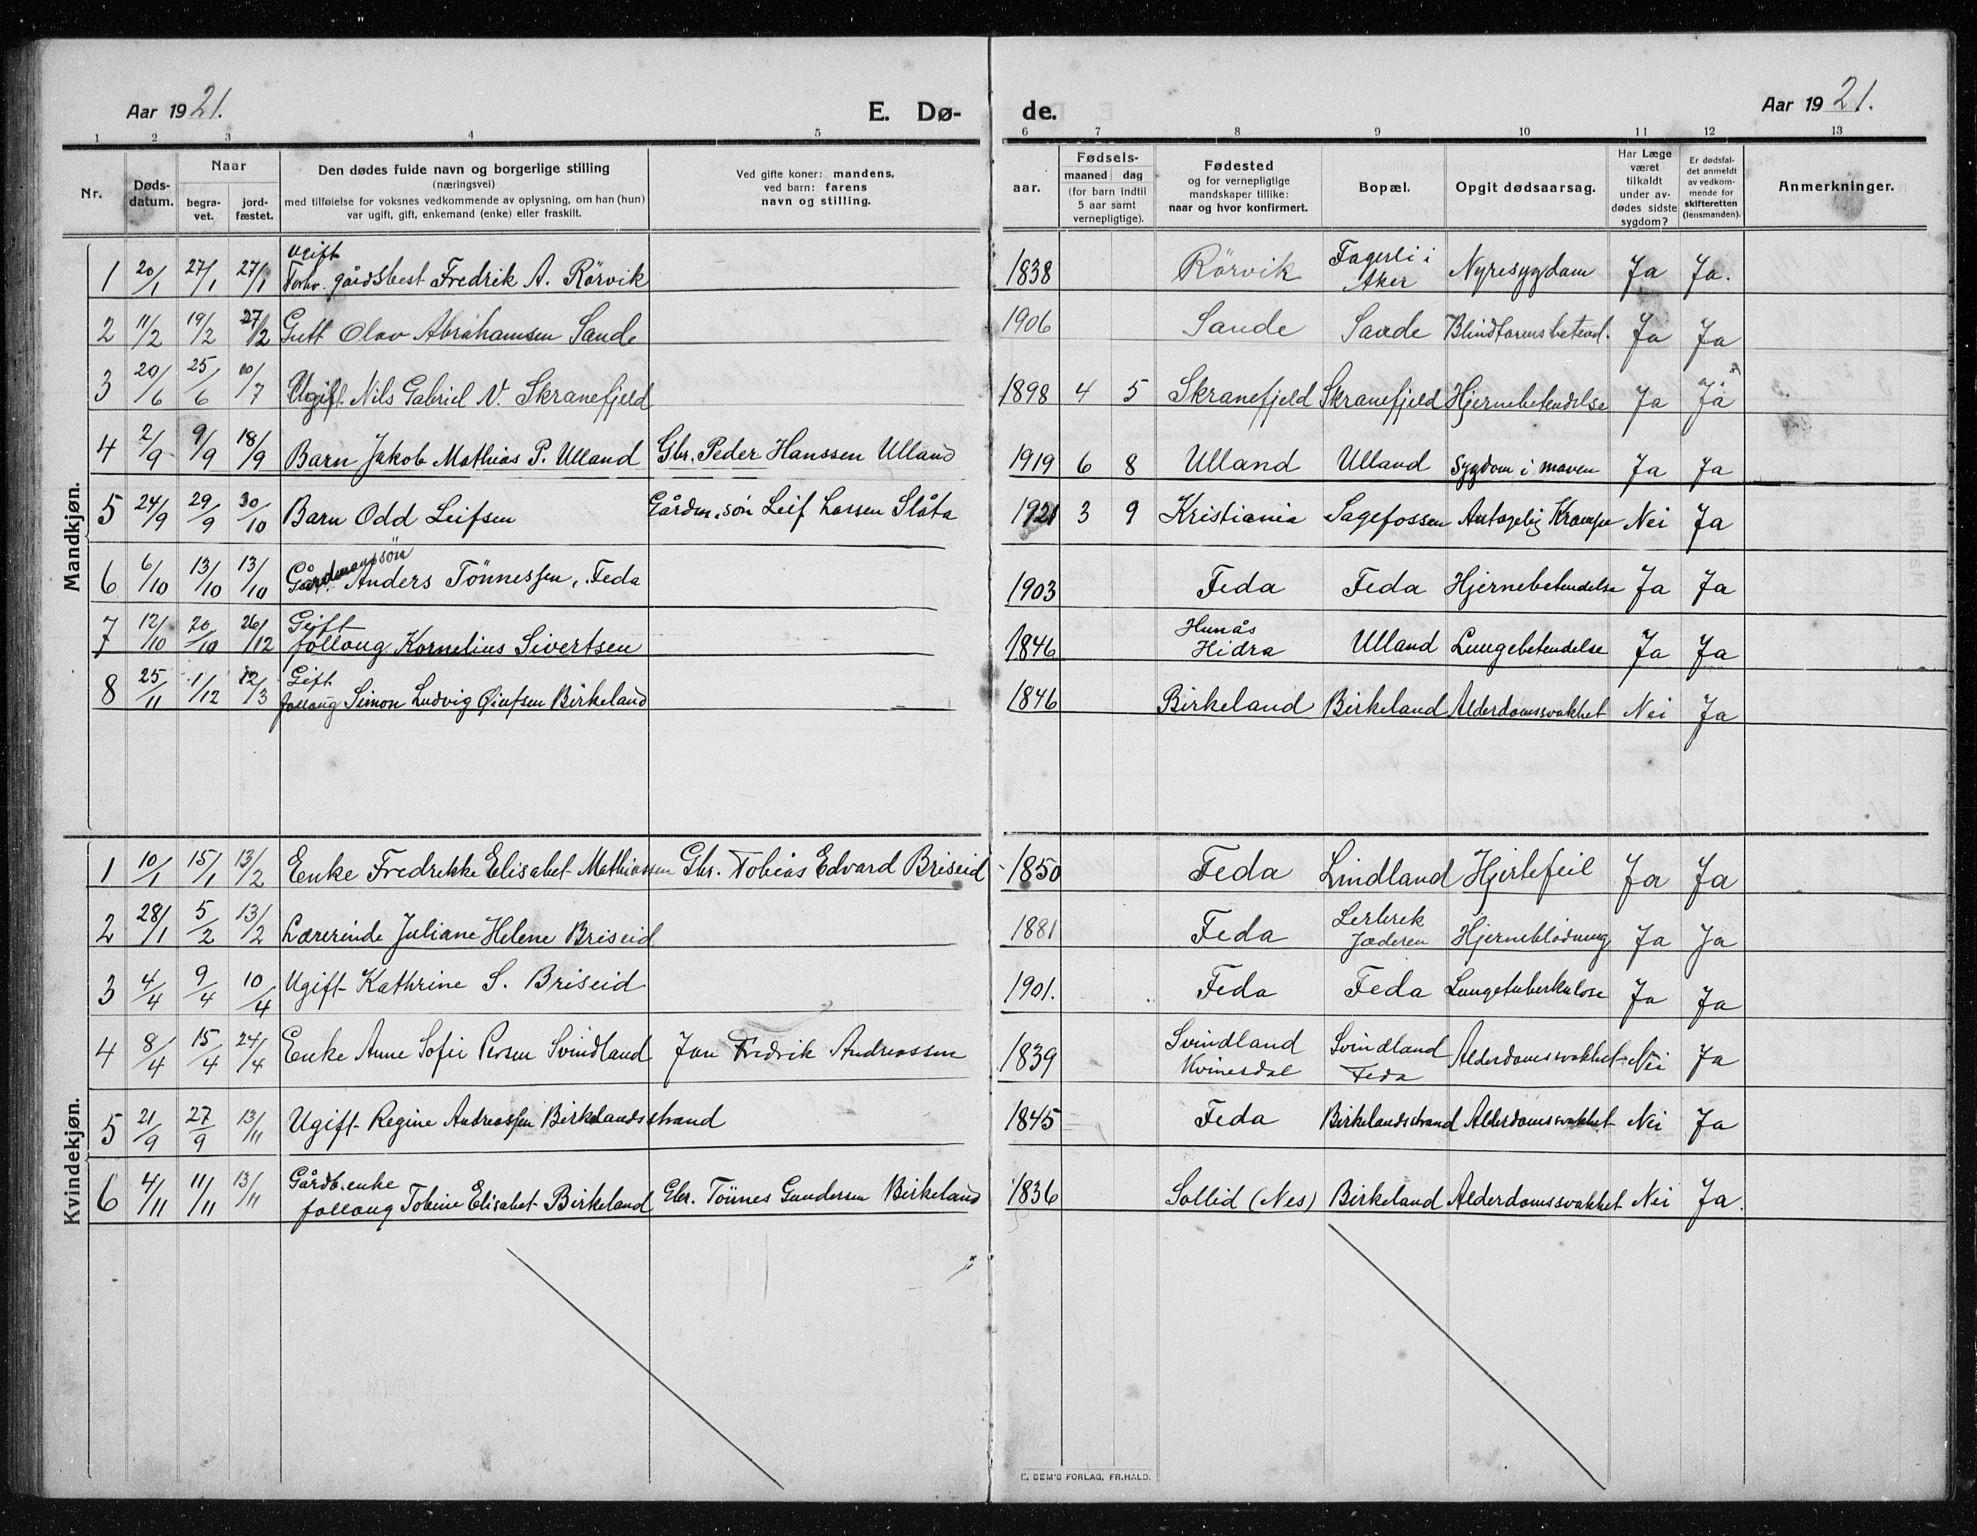 Aar 1921. E. Dø- de. Aar 1921.
1 2 3 4 5 6 7 8 9 10 11 12 13
Nr.
Døds-
datum.
Naar
begra-
vet.
jord-
fæstet.
Den dødes fulde navn og borgerlige stilling
(næringsvei)
med tilføielse for voksnes vedkommende av oplysning, om han (hun)
var ugift, gift, enkemand (enke) eller fraskilt.
Ved gifte koner: mandens,
ved barn: farens
navn og stilling.
aar.
Fødsels-
maaned dag
(for barn indtil
5 aar samt
vernepligtige).
Fødested
og for vernepligtige
mandskaper tillike:
naar og hvor konfirmert.
Bopæl.
Opgit dødsaarsag.
Har Læge
været
tilkaldt
under av-
dødes sidste
sygdom?
Er dødsfal-
det anmeldt
av vedkom-
mende for
skifteretten
(lensmanden).
Anmerkninger.
Mandkjøn.
Ugift
1 20/1 27/1 27/1 Forhv. gårdsbest Fredrik A. Rörvik 1838 Rörvik Fagerli i Aker Nyresygdom Ja Ja.
2 11/2 19/2 27/2 Gutt Olav Abrahamsen Sande 1906 Sande Sande Blindtarmsbetend. Ja Ja
3 20/6 25/6 10/7 Ugift Nils Gabriel N. Skranefjeld 1898 4 5 Skranefjeld Skranefjeld Hjernebetendelse Ja Ja
4 2/9 9/9 18/9 Barn Jakob Mathias P. Ulland Gbr. Peder Hanssen Ulland 1919 6 8 Ulland Ulland Sygdom i maven Ja Ja
5 24/9 29/9 30/10 Barn Odd Leifsen Gårdm.søn Leif Larsen Slåta 1921 3 9 Kristiania Sagefossen Antagelig Krampe Nei Ja
6 6/10 13/10 13/10 Gårdmannssön Anders Tönnessen, Feda 1903 Feda Feda Hjernebetendelse Ja Ja
Gift
7 12/10 20/10 26/12 follaug Kornelius Sivertsen 1846 Hunås Hidra Ulland Lungebetendelse Ja Ja
Gift
8 25/11 1/12 12/3 follaug Simon Ludvig Öiufsen Birkeland 1846 Birkeland Birkeland Alderdomssvakhet Nei Ja
Kvindekjøn.
1 10/1 15/1 13/2 Enke Fredrikke Elisabet Mathiassen Gbr. Tobias Edvard Briseid 1850 Feda Lindland Hjertefeil Ja Ja
2 28/1 5/2 13/2 Lærerinde Juliane Helene Briseid 1881 Feda Lerbrek Jæderen Hjerneblödning Ja Ja
3 4/4 9/4 10/4 Ugift Kathrine S. Briseid 1901. Feda Feda Lungetuberkulose Ja Ja
4 8/4 15/4 24/4 Enke Anne Sofie Persen Svindland Jan Fredrik Andreassen 1839 Svindland Kvinesdal Svindland Feda Alderdomssvakhet Nei Ja
5 21/9 27/9 13/11 Ugift Regine Andreassen Birkelandsstrand 1845 Feda Birkelandsstrand Alderdomssvakhet Nei Ja
Gårdb.enke
6 4/11 11/11 13/11 follaug Tobine Elisabet Birkeland Gbr. Tönnes Gundersen Birkeland 1836 Sollid (Nes) Birkeland Alderdomssvakhet Nei Ja.
E. SEM'S FORLAG, FR.HALD.